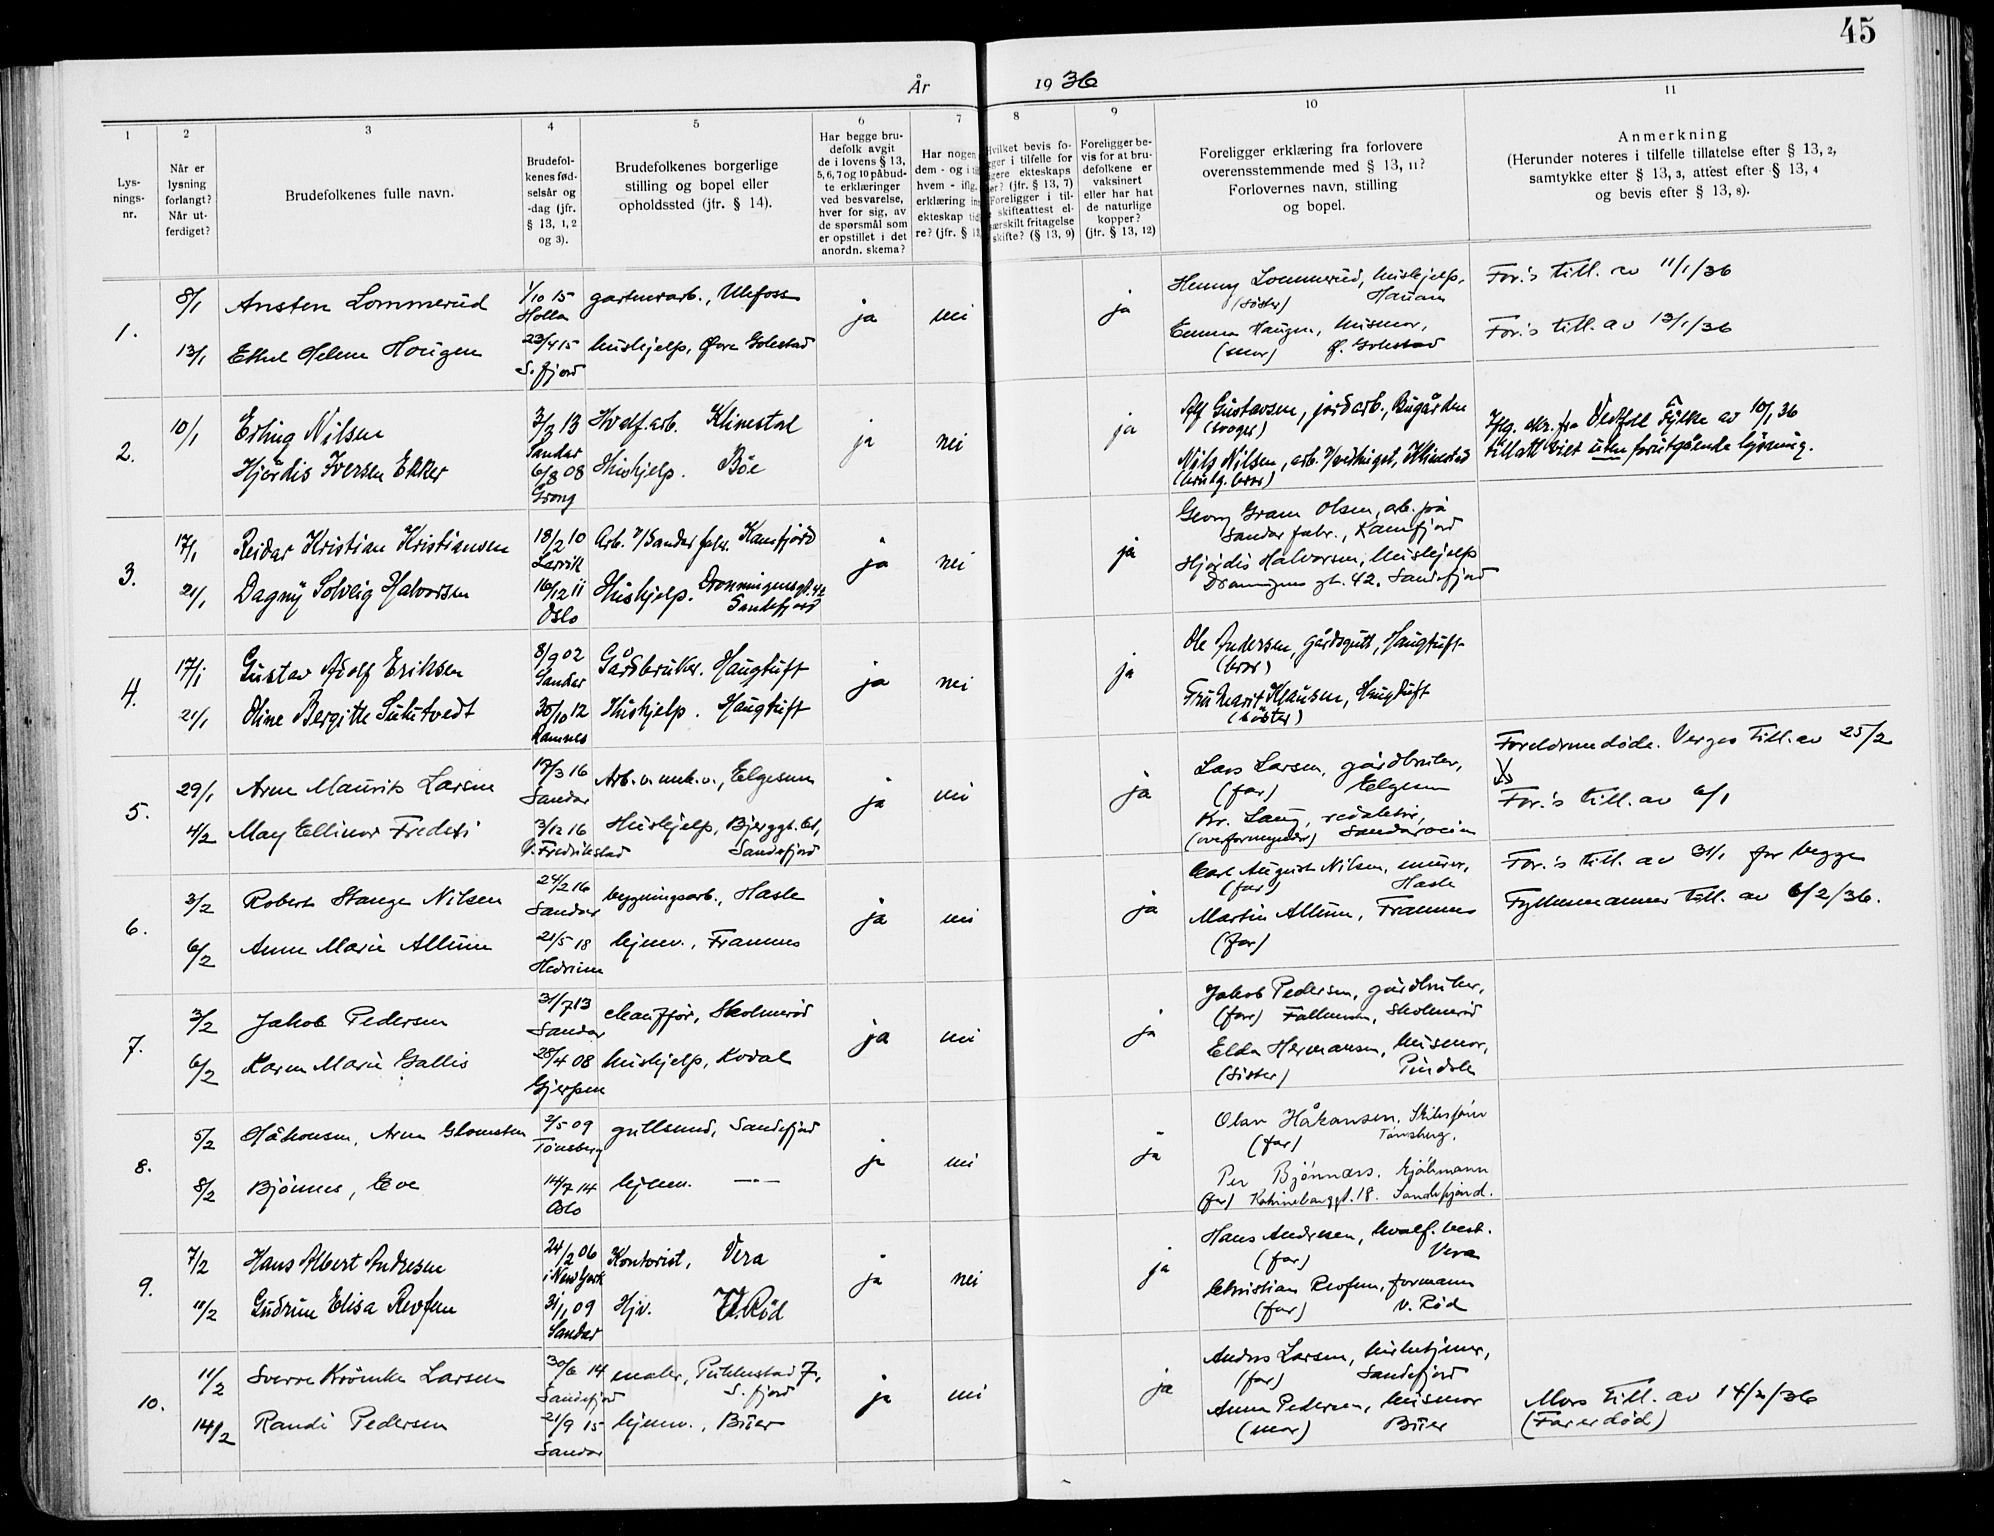 45
År 1936
1
2
3
4
5
6
7
8
9
10
11
Lys-
nings-
nr.
Når er
lysning
forlangt?
Når ut-
ferdiget?
Brudefolkenes fulle navn.
Brudefol-
kenes fød-
selsår og
-dag (jfr.
§ 13, 1, 2
og 3).
Brudefolkenes borgerlige
stilling og bopel eller
opholdssted (jfr. § 14).
Har begge bru-
defolk avgit
de i lovens § 13,
5, 6, 7 og 10 påbud-
te erklæringer
ved besvarelse,
hver for sig, av
de spørsmål som
er opstillet i det
anordn. skema?
Har nogen
dem - og i
hvem - iflg.
erklæring
ekteskap
re? (jfr. §
Hvilket bevis fo-
i tilfelle for
ekteskaps
(jfr. § 13, 7)
Foreligger i til-
skifteattest el-
særskilt fritagelse
skifte? (§ 13, 9)
Foreligger be-
vis for at bru-
defolkene er
vaksinert
eller har hat
de naturlige
kopper?
(jfr. § 13, 12)
Foreligger erklæring fra forlovere
overensstemmende med § 13, 11?
Forlovernes navn, stilling
og bopel.
Anmerkning
(Herunder noteres i tilfelle tillatelse efter § 13, 2,
samtykke efter § 13, 3, attest efter § 13, 4
og bevis efter § 13, 8).
1.
8/1 Ansten Lommerud 1/10 15 gartnerarb., Ulefoss ja nei ja Henny Lommerud, hushjelp, For.'s till. av 11/1/36
Holla (søster) Hauan
13/1 Ethel Helene Hougen 23/4 15 hushjelp, Øvre Golestad Emma Haugen, husmor, For.'s till. av 13/1/36
S. fjord (mor) Ø. Golestad
2.
10/1 Erling Nilsen 3/3 13 Hvalf.arb. Klinestad ja nei ja Gustavsen, jordarb., Bugården
Sandar (svoger) fra Vestfold Fylke av 10/1 36
Hjördis Iversen Ekker 6/8 08 Hushjelp. Böe Nils Nilsen, arb. Klinestad tillatt viet uten forutgående lysning.
Grong (brudg. bror)
3.
17/1 Reidar Kristian Kristiansen 18/2 10 Arb. v/Sandar fabr. Kamfjord ja nei ja Georg Gram Olsen, arb. på
Larvik Sandar fabr., Kamfjord
21/1 Dagny Solveig Halvorsen 16/12 11 Hushjelp. Dronningensgt. 42 Hjørdis Halvorsen, hushjelp
Oslo Sandefjord Dronningens gt. 42. Sandefjord
4.
17/1 Gustav Adolf Eriksen 8/9 02 Gårdbruker. Haugtuft ja nei ja Ole Andersen, gårdsgutt, Haugtuft
Sandar (bror)
21/1 Oline Bergitte Sukutvedt 30/10 12 Hushjelp. Haugtuft Fru Marit Klausen, Haugtuft
Ramnes (söster)
5.
29/1 Arne Maurits Larsen 17/3 16 Arb. v. mek. v., Elgesem ja nei ja Lars Larsen, gårdbruker, Foreldrene døde. Verges till. av 25/2
Sandar (far) Elgesem
4/2 May Ellinor Fredeti 3/12 16 Hushjelp, Bjerggt. 61, Kr. Laug, redaktør, For.'s till. av 6/1
Fredrikstad Sandefjord (overformynder)
6.
3/2 Robert Stange Nilsen 24/2 16 bygningsarb., Hasle ja nei ja Carl August Nilsen, murer, For.'s till. av 31/1 for begge
Sandar (far) Hasle
6/2 Anne Marie Allum 21/5 18 hjemv., Framnes Martin Allum, Framnes Fylkesmannens till. av 6/2/36.
Hedrum (far)
7.
3/2 Jakob Pedersen 31/7 13 chauffør, Skolmerød ja nei ja Jakob Pedersen, gårdbruker,
Sandar (far) Skolmerød
6/2 Karen Marie Gallis 28/4 08 hushjelp, Kodal Elda Hermansen, husmor,
Gjerpen (Sister) Pindsle
8.
5/2 Håkonsen, Arne Glomsten 2/5 09 gullsmed, Sandefjord ja nei ja Olav Håkansen,
Tønsberg (far) Tønsberg.
8/2 Bjönnes, Eva 14/7 14 hjemv. -"- Per Bjönnæs. Sjömann
Oslo (far) Katrineborggt. 18. Sandefjord.
9.
7/2 Hans Albert Andresen 24/2 06 Kontorist, Vera ja nei ja Hans Andresen, hvalf. best.
i New York (far) Vera
11/2 Gudrun Elisa Revfem 31/1 09 Hjv. V. Röd Christian Revfem, formann
Sandar (far) V. Röd
10.
11/2 Sverre Krömke Larsen 30/6 14 maler, Pukkestad 7, ja nei ja Anders Larsen, kirketjener,
Sandefjord S. fjord (far) Sandefjord
14/2 Randi Pedersen 21/9 15 hjemv., Buer Anna Pedersen, husmor Mors till. av 14/2/36
Sandar (mor) Buer (Far er död)